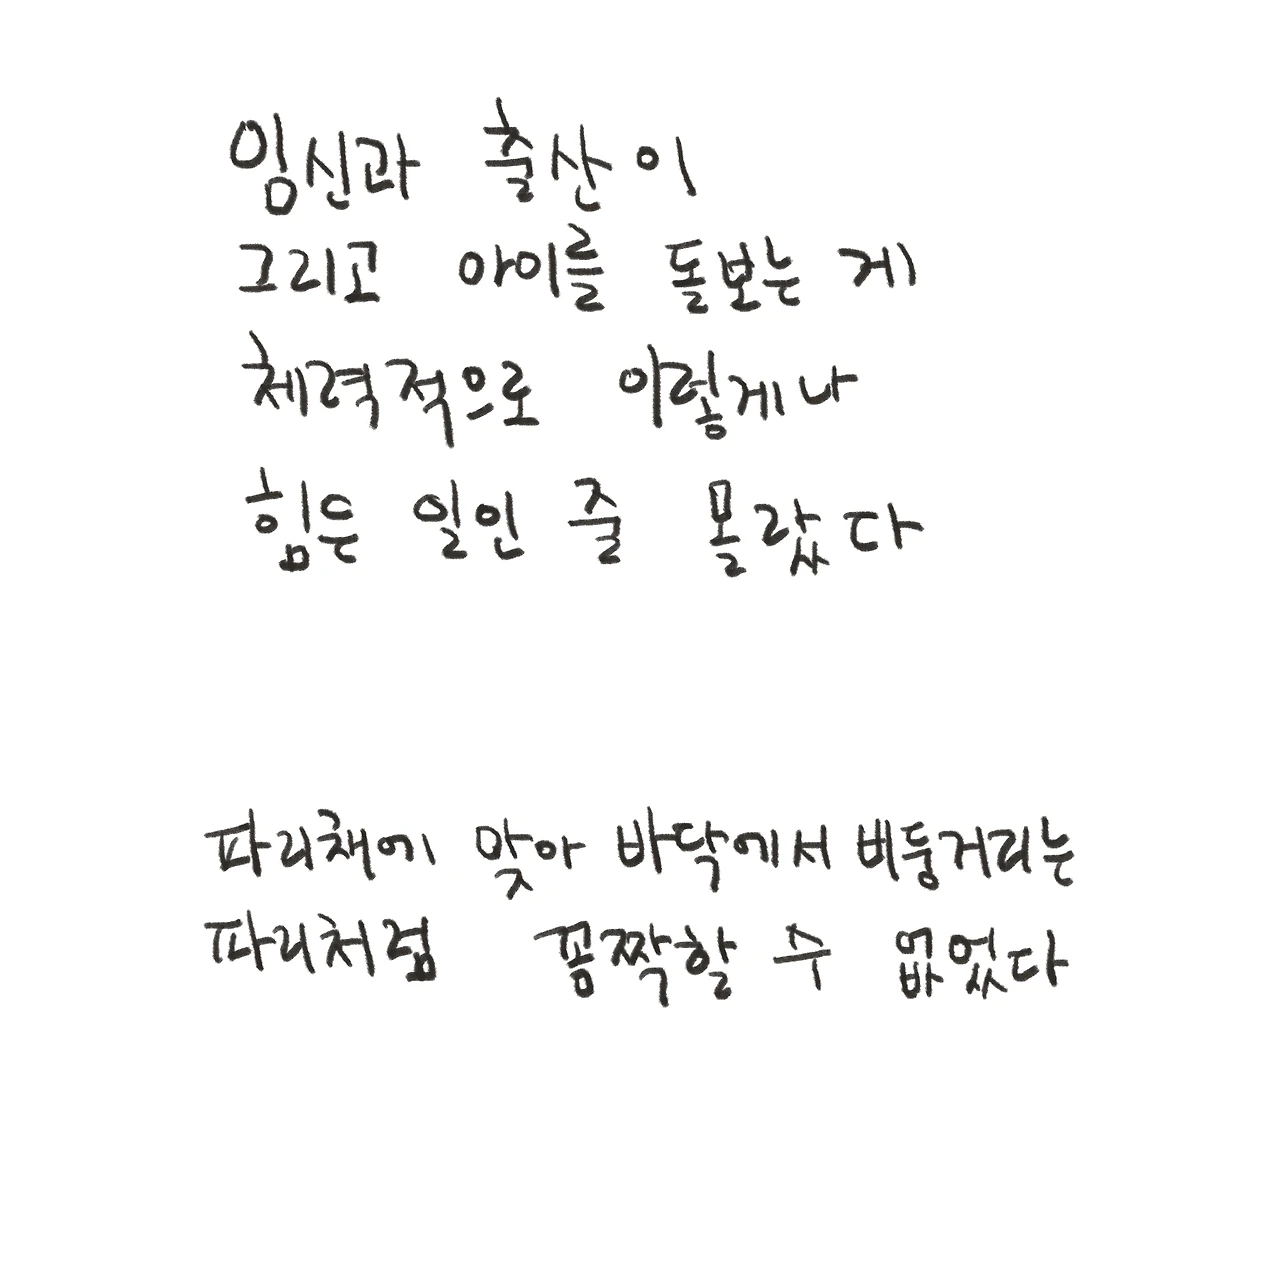 임신과 출산이
그리고 아이를 돌보는 게
체력적으로 이렇게나
힘든 일인 줄 몰랐다
파리채에 맞아 바닥에서 버둥거리는
파리처럼 꼼짝할 수 없었다